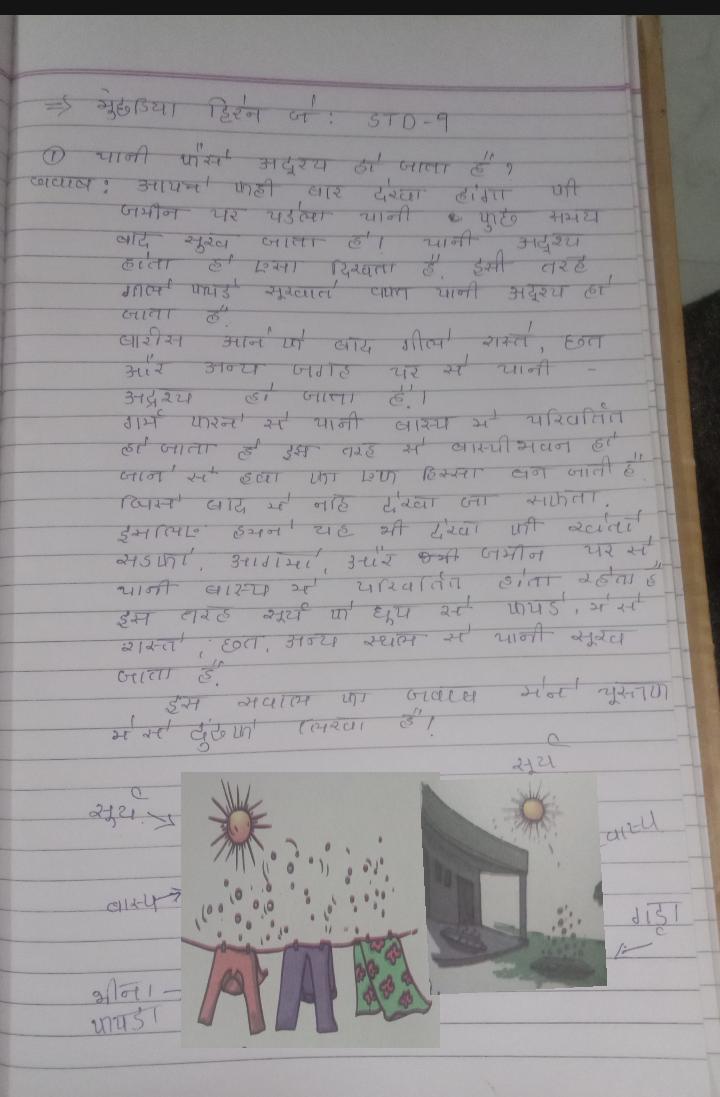 ⇒ मुछडिया हिरेन जे : STD-9
① पानी कैसे अद्रश्य हो जाता है ?
जवाब : आपने कही बार देखा होगा की
जमीन पर पडेला पानी कुछ समय
बाद सुख जाता है। पानी अद्रश्य
होता हो एसा दिखता है. इसी तरह
गीले कपडे सूखाते वक्त पानी अद्रश्य हो
जाता है.
बारीस आने के बाद गीले रास्ते, छत
और अन्य जगह पर से पानी -
अद्रश्य हो जाता है।
गर्म करने से पानी बास्प मे परिवर्तित
हो जाता है इस तरह से बास्पीभवन हो
जाने से हवा का एक हिस्सा बन जाती है.
जिसे बाद मे नहि देखा जा सकता.
इसलिए हमने यह भी देखा की खेतो
सडको, आगमो, और जमीन पर से
पानी बास्प मे परिवर्तित होता रहेता है
इस तरह सूर्य के धूप से कपडे, मे से
रास्ते, छत, अन्य स्थल से पानी सूख
जाता है.
इस सवाल का जवाब मेने पूस्तक
मे से ढुंढके लिखा है।
सूर्य
सूर्य
बास्प
बास्प
गड्डा
भीना
कपडा